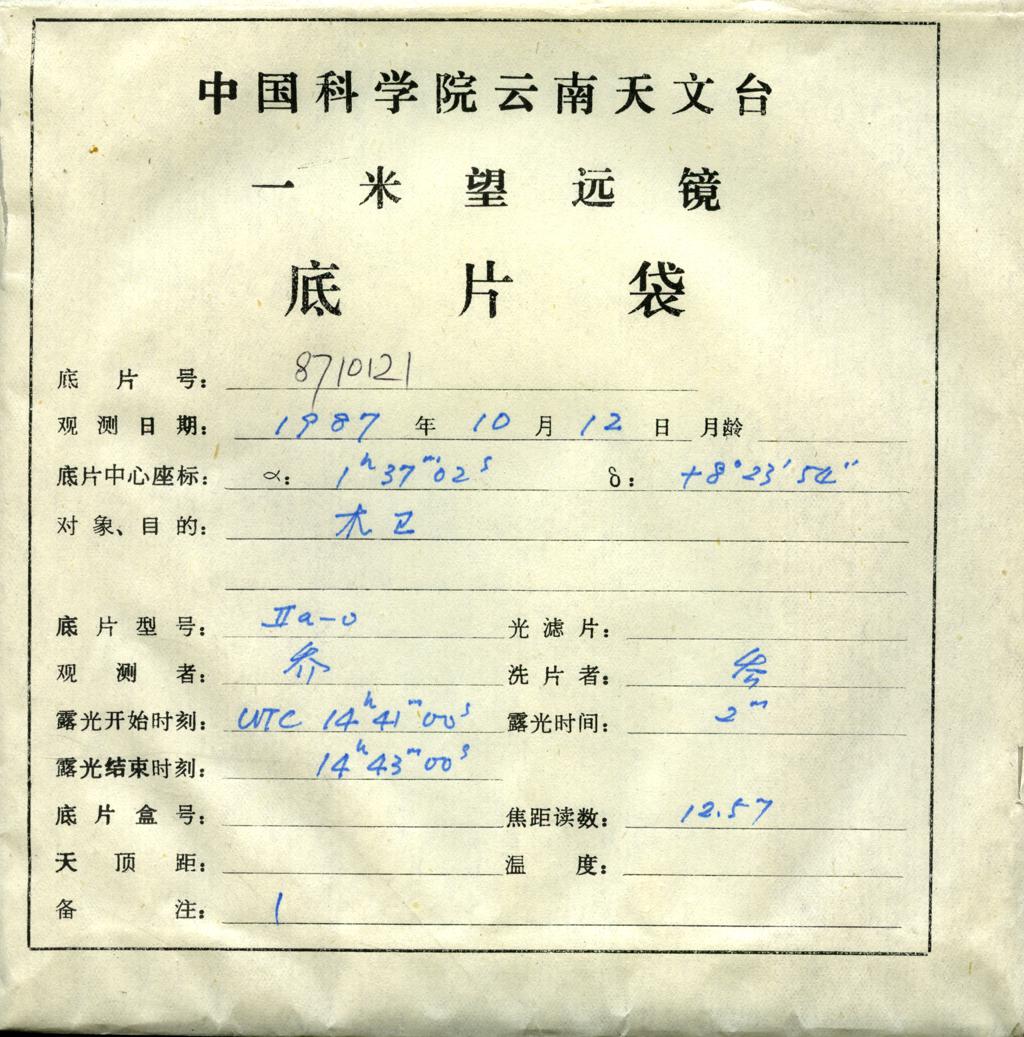 中国科学院云南天文台
一米望远镜
底片袋
底片号： 8710121
观测日期： 1987 年 10 月 12 日 月龄
底片中心座标： α： 1ʰ37ᵐ02ˢ δ： +8°23′54″
对象、目的： 木卫
底片型号： IIa-o 光滤片：
观测者： 洗片者：
露光开始时刻： UTC 14ʰ41ᵐ00ˢ 露光时间： 2ᵐ
露光结束时刻： 14ʰ43ᵐ00ˢ
底片盒号： 焦距读数： 12.57
天顶距： 温度：
备注： 1